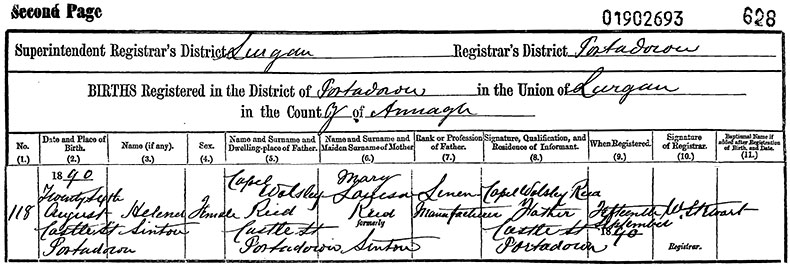 Second Page
01902693 628
Superintendent Registrar's District Lurgan Registrar's District Portadown
BIRTHS Registered in the District of Portadown in the Union of Lurgan
in the County of Armagh
No. (1.)
Date and Place of Birth. (2.)
Name (if any). (3.)
Sex. (4.)
Name and Surname and Dwelling-place of Father. (5.)
Name and Surname and Maiden Surname of Mother (6.)
Rank or Profession of Father. (7.)
Signature, Qualification, and Residence of Informant. (8.)
When Registered. (9.)
Signature of Registrar. (10.)
Baptismal Name if added after Registration of Birth, and Date. (11.)
118
1890
Twenty Sixth
August
Castle St
Portadown
Helena
Sinton
Female
Capel
Wolsley
Reid
Castle St
Portadown
Mary
Louisa
Reid
formerly
Sinton
Linen
Manufacturer
Capel Wolsley Reid
Father
Castle St
Portadown
Fifteenth
September
1890
W. Stewart
Registrar.